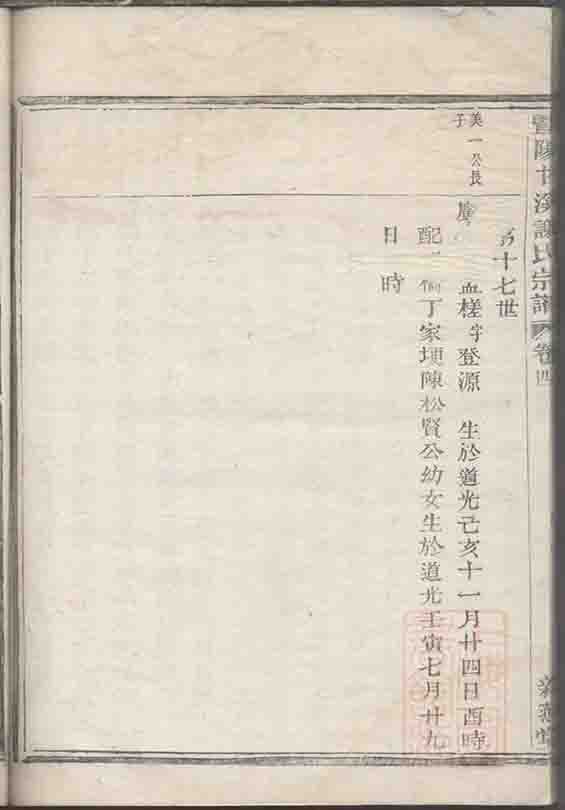 暨陽甘溪譚氏宗譜 卷四
十七世
美一公長
子
槎字登源 生於道光己亥十一月廿四日酉時
配 丁家埂陳松賢公幼女生於道光壬寅七月廿九
日 時